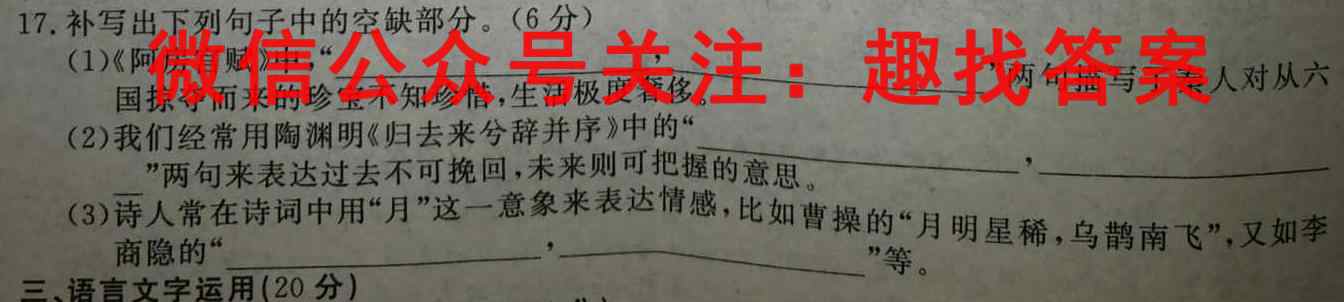 17.补写出下列句子中的空缺部分。(6分)
(1)《阿房宫赋》中,“ , ”两句描写了秦人对从六
国掠夺而来的珍宝不知珍惜,生活极度奢侈。
微信公众号关注：趣找答案
(2)我们经常用陶渊明《归去来兮辞并序》中的“ ,
”两句来表达过去不可挽回,未来则可把握的意思。
(3)诗人常在诗词中用“月”这一意象来表达情感,比如曹操的“月明星稀,乌鹊南飞”,又如李
商隐的“ , ”等。
三、语言文字运用(20分)